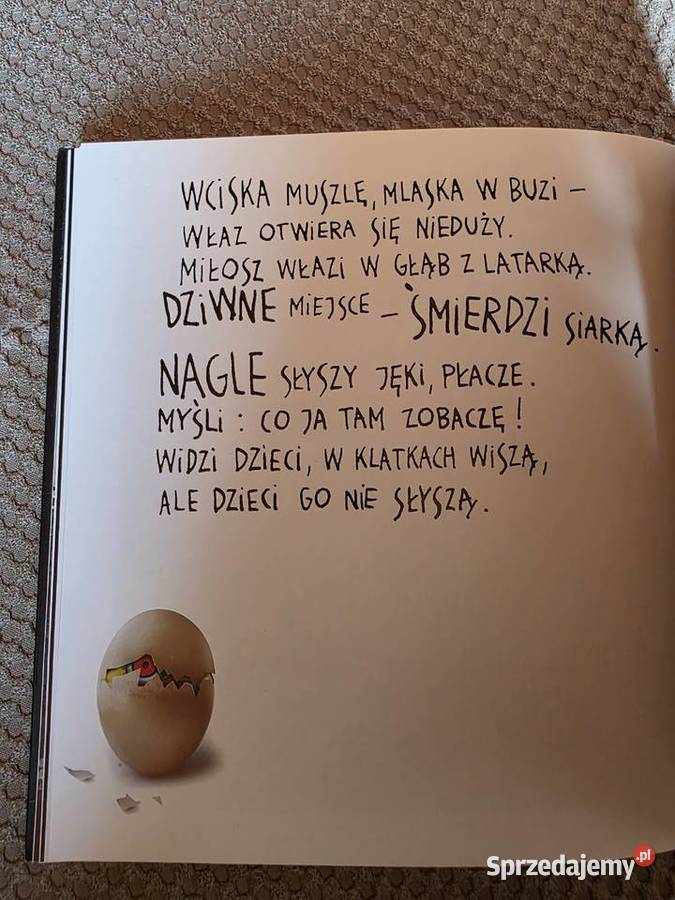 WCISKA MUSZLĘ, MLASKA W BUZI –
WŁAZ OTWIERA SIĘ NIEDUŻY.
MIŁOSZ WŁAZI W GŁĄB Z LATARKĄ.
DZIWNE MIEJSCE – ŚMIERDZI SIARKĄ.
NAGLE SŁYSZY JĘKI, PŁACZE.
MYŚLI : CO JA TAM ZOBACZĘ!
WIDZI DZIECI, W KLATKACH WISZĄ,
ALE DZIECI GO NIE SŁYSZĄ.
Sprzedajemy.pl